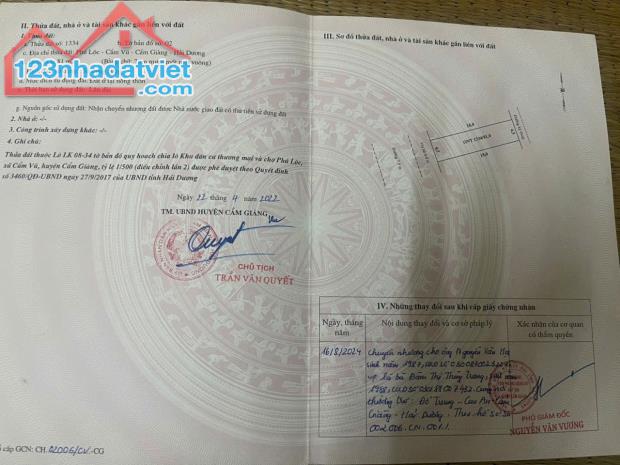 II. Thửa đất, nhà ở và tài sản khác gắn liền với đất
1. Thửa đất:
a. Thửa đất số: 1334 b. Tờ bản đồ số: 02
c. Địa chỉ thửa đất: Phú Lộc - Cẩm Vũ - Cẩm Giàng - Hải Dương
123nhadatviet.com
d. Mục đích sử dụng đất: Đất ở tại nông thôn
g. Nguồn gốc sử dụng đất: Nhận chuyển nhượng đất được Nhà nước giao đất có thu tiền sử dụng đất
2. Nhà ở: -/-
3. Công trình xây dựng khác: -/-
4. Ghi chú:
Thửa đất thuộc Lô LK 08-34 tờ bản đồ quy hoạch chia lô Khu dân cư thương mại và chợ Phú Lộc,
xã Cẩm Vũ, huyện Cẩm Giàng, tỷ lệ 1/500 (điều chỉnh lần 2) được phê duyệt theo Quyết định
số 3460/QĐ-UBND ngày 27/9/2017 của UBND tỉnh Hải Dương
Ngày 22 tháng 4 năm 2022
TM. UBND HUYỆN CẨM GIÀNG
CHỦ TỊCH
TRẦN VĂN QUYẾT
Số vào sổ cấp GCN: CH.02006/CV-CG
III. Sơ đồ thửa đất, nhà ở và tài sản khác gắn liền với đất
18,0
4,5
4,5
18,0
IV. Những thay đổi sau khi cấp giấy chứng nhận
Ngày, tháng năm
Nội dung thay đổi và cơ sở pháp lý
Xác nhận của cơ quan có thẩm quyền
16/8/2024
Chuyển nhượng cho ông Nguyễn Văn
sinh năm 1987,
bà Đàm Thị Thùy Dương, sinh năm
1988,
thường trú: Đỗ Trung - Cao An - Cẩm
Giàng - Hải Dương. Theo hồ sơ số
002006.CN.001.
PHÓ GIÁM ĐỐC
NGUYỄN VĂN VƯƠNG